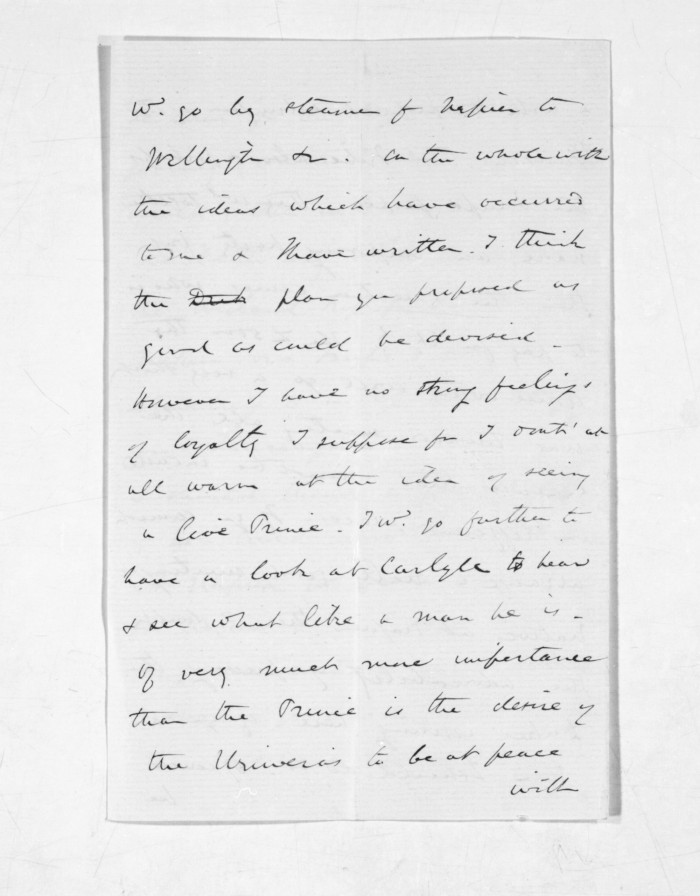 Wd. go by steamer fr Napier to
Wellington &c. On the whole with
the ideas which have occurred
to me & I have written. I think
the plan you proposed as
good as could be devised -
However I have no strong feelings
of loyalty I suppose for I dont' at
all warm at the idea of seeing
a live Prince. I wd. go further to
have a look at Carlyle to hear
& see what like a man he is -
Of very much more importance
than the Prince is the desire of
the Uriweras to be at peace
with